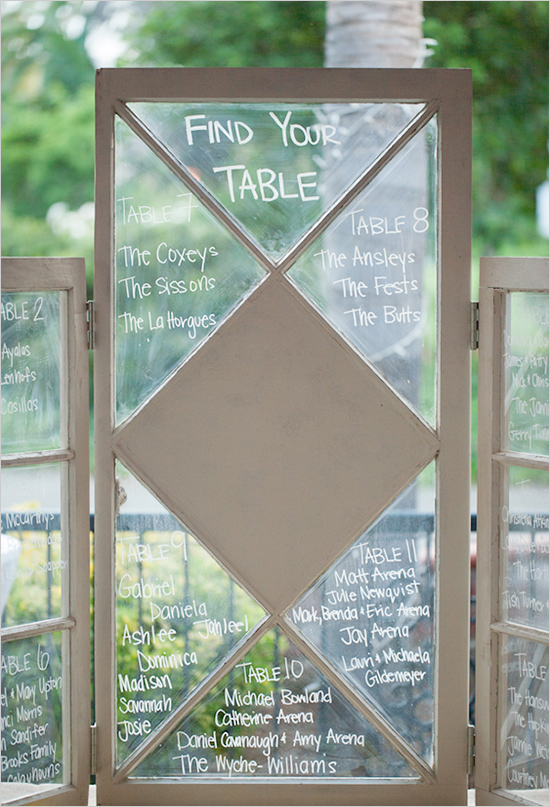 Find Your
Table
Table 7
The Coxeys
The Sissons
The La Horgues
Table 8
The Ansleys
The Fests
The Butts
Table 9
Gabriel
Daniela
Ashlee Jahleel
Dominica
Madison
Savannah
Josie
Table 10
Michael Bowland
Catherine Arena
Daniel Cavanaugh & Amy Arena
The Wyche-Williams
Table 11
Matt Arena
Julie Newquist
Mark, Brenda & Eric Arena
Jay Arena
Lauri & Michaela
Gildemeyer
able 2
Ayalas
Casillas
McCarthys
Table 6
& May Upton
Morris
Brooks Family
Calayhouns
James &
The Jam
Gerry Turn
Christena
Trish Turner
Table
Jamie
The